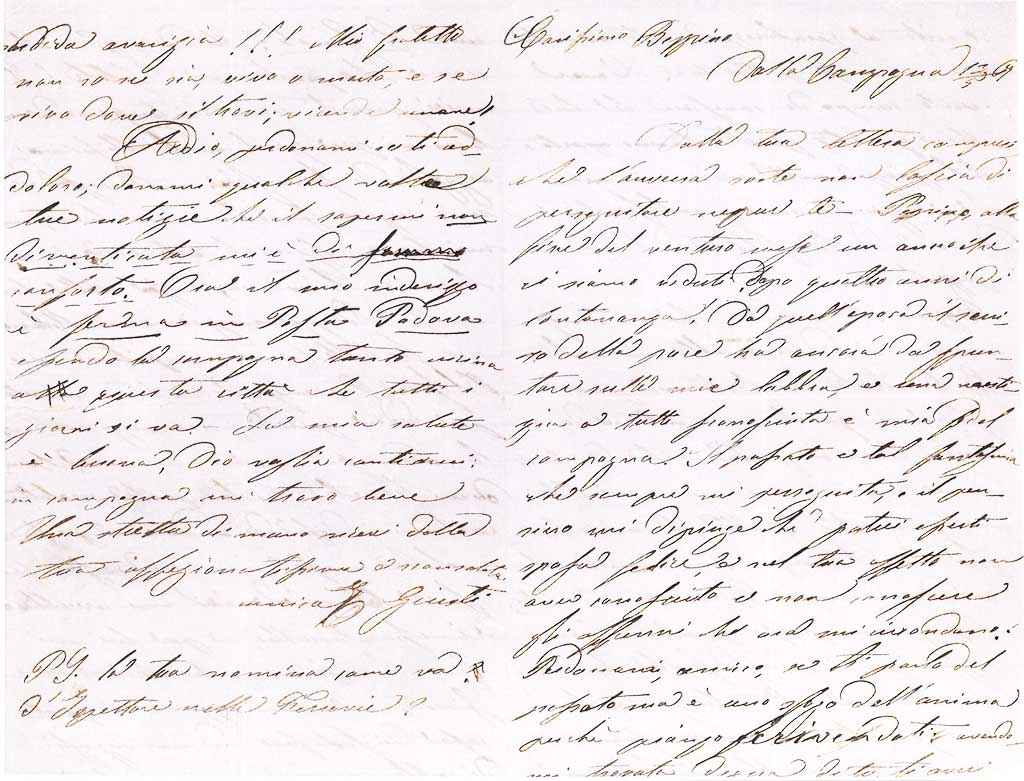 Carissimo Beppino
Dalla Campagna
Dalla tua lettera compresi
che l'avversa sorte non lascia di
perseguitare neppur te – alla
fine del venturo mese un anno che
ci siamo veduti dopo quattro anni di
lontananza! Da quell'epoca il sorri-
so della pace ha ancora da spun-
tare sulle mie labbra, e una
a tutti sconosciuta è mia fedel
compagna. Il passato è tal fantasima
che sempre mi perseguita, e il pen-
siero mi dipinge che potrei esserti
sposa felice e nel tuo affetto non
aver conosciuto e non conoscere
gli affanni che ora mi circondano!
Perdonami, amico, se ti parlo del
passato ma è uno sfogo dell'anima
perchè piango scrivendoti: avendo-
mi trovata degna di te
candida amicizia!!! Mio fratello
non so se sia vivo o morto, e se
vivo dove si trovi; vicende umane!
Addio, perdonami se ti ad-
doloro; donami qualche volta
tue notizie che il sapermi non
dimenticata mi è di sommo
conforto. Ora il mio indirizzo
è ferma in Posta Padova
essendo la campagna tanto vicina
a questa città che tutti i
giorni si va. La mia salute
è buona, Dio voglia continui;
in campagna mi trovo bene
Una stretta di mano ricevi dalla
tua affezionatissima
amica E Giusti
PS. La tua nomina come va?
d'Ispettore nelle Ferrovie?